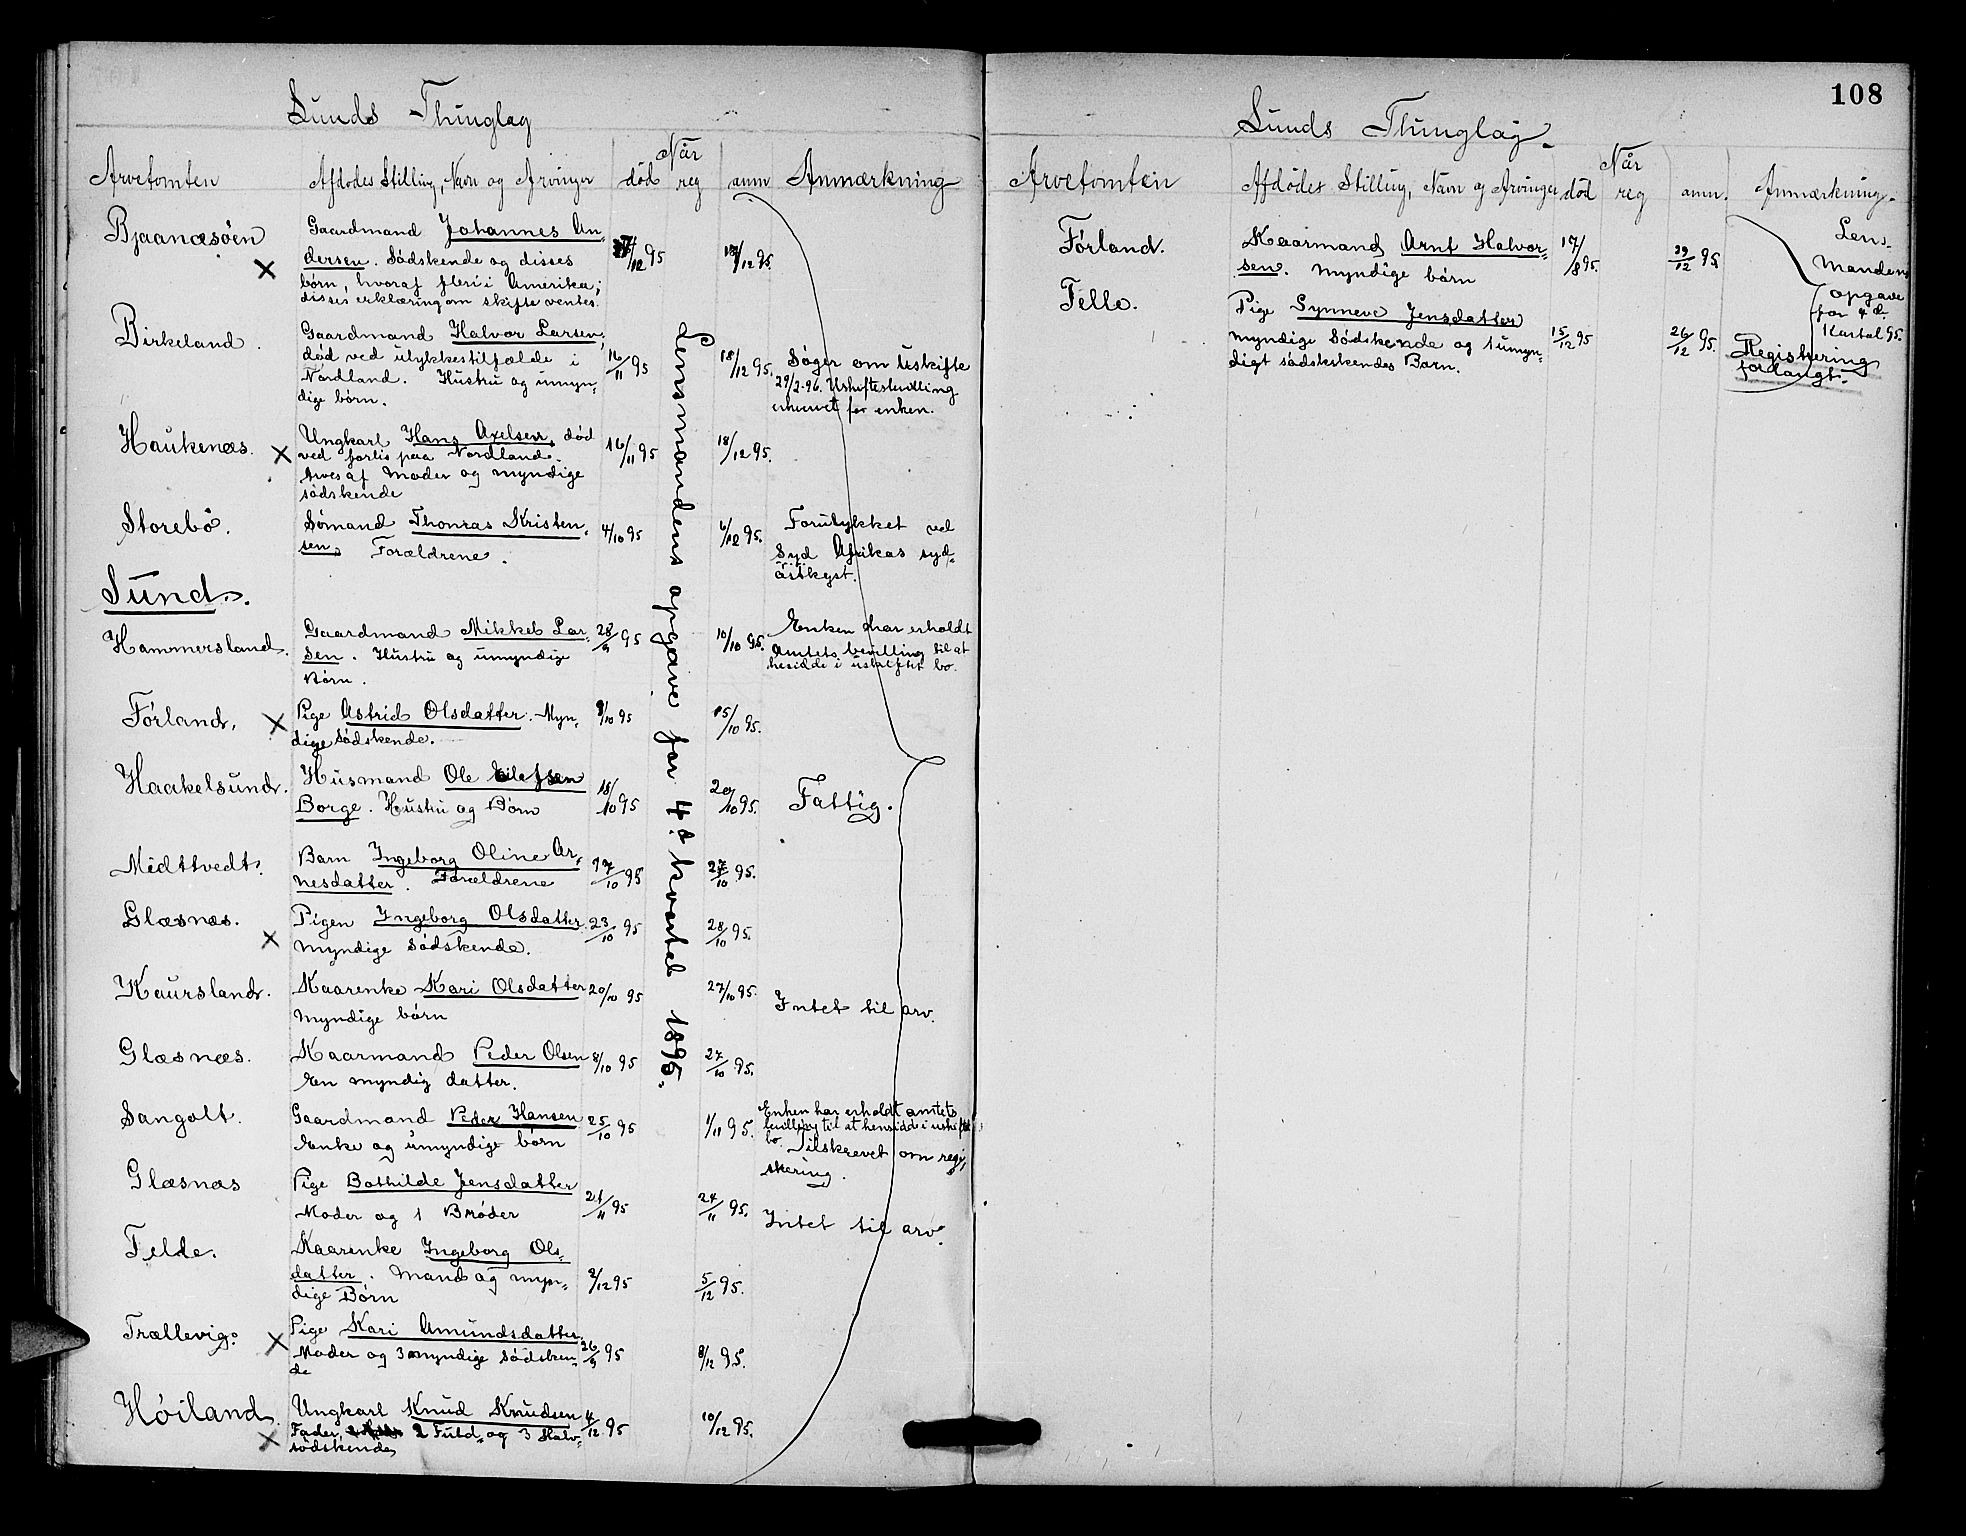 Sunds Thinglag
Når
Arvetomten Afdødes Stilling, Navn og Arvinger død reg anm Anmærkning
Bjaanæsøen Gaardmand Johannes An-
dersen. Södskende og disses 12 95 17/12 95.
× børn, hvoraf flere i Amerika;
disses erklæring om skifte ventes.
Birkeland. Gaardmand Halvor Larsen,
død ved ulykkestilfælde i 16/11 95 18/12 95. Søger om uskifte
Nordland. Hustru og umyn- 29/2-96. Uskiftesbevilling
dige børn. erhvervet for enken.
Haukenæs. × Ungkarl Hans Axelsen, død 16/11 95 18/12 95.
ved forlis paa Nordland.
Arves af Moder og myndige
södskende
Storebö. Sömand Thomas Kristen- 4/10 95 6/12 95. Forulykket ved
sen, Forældrene. Syd Afrikas syd-
östkyst.
Sund.
Hammersland. Gaardmand Mikkel Lar- 28/9 95 10/10 95. Enken har erholdt
sen. Hustru og umyndige Amtets bevilling til at
Børn. hesidde i uskiftet bo.
Förland, × Pige Astrid Olsdatter. Myn- 9/10 95 15/10 95.
dige Södskende.
Haakelsund. Husmand Ole
Borge. Hustru og Börn 18/10 95 20/10 95. Fattig.
Midttvedt. Barn Ingeborg Oline Ar-
nesdatter. Forældrene 17/10 95 27/10 95.
Glæsnæs. Pigen Ingeborg Olsdatter 23/10 95 28/10 95.
× Myndige Södskende.
Kaursland. Kaarenke Kari Olsdatter 20/10 95 27/10 95. Intet til arv.
Myndige børn
Glæsnæs. Kaarmand Peder Olsen 8/10 95 27/10 95.
En myndig datter.
Sangolt. Gaardmand Peder Hansen 25/10 95 1/11 95. Enken har erholdt amtets
Enke og umyndige børn bevilling til at hensidde i uskiftet
bo. Tilskrevet om regi-
strering.
Glæsnæs Pige Bothilde Jensdatter
Moder og 1 Broder 21/11 95 24/11 95. Intet til arv.
Telle. Kaarenke Ingeborg Ols-
datter. Mand og myn- 2/12 95 5/12 95.
dige Börn
Trællevig. × Pige Kari Amundsdatter.
Moder og 3 myndige Södsken- 26/9 95 8/12 95.
de
Höiland. Ungkarl Knud Knudsen 4/12 95 10/12 95.
× Fader, 2 Fuld- og 3 Halv-
södskende
Lensmandens opgave for 4d kvartal 1895.
108
Sunds Thinglag.
Når
Arvetomten Afdødes Stilling, Navn og Arvinger død reg anm. Anmærkning.
Förland. Kaarmand Arnt Halvor- 17/8 95. 29/12 95.
sen. Myndige börn
Lens-
manden
opgave
for 4d.
Kvartal 95.
Telle. Pige Synneve Jensdatter
Myndige Södskende og 1 umyn- 15/12 95 26/12 95. Registrering
digt södskendes Barn. forlangt.